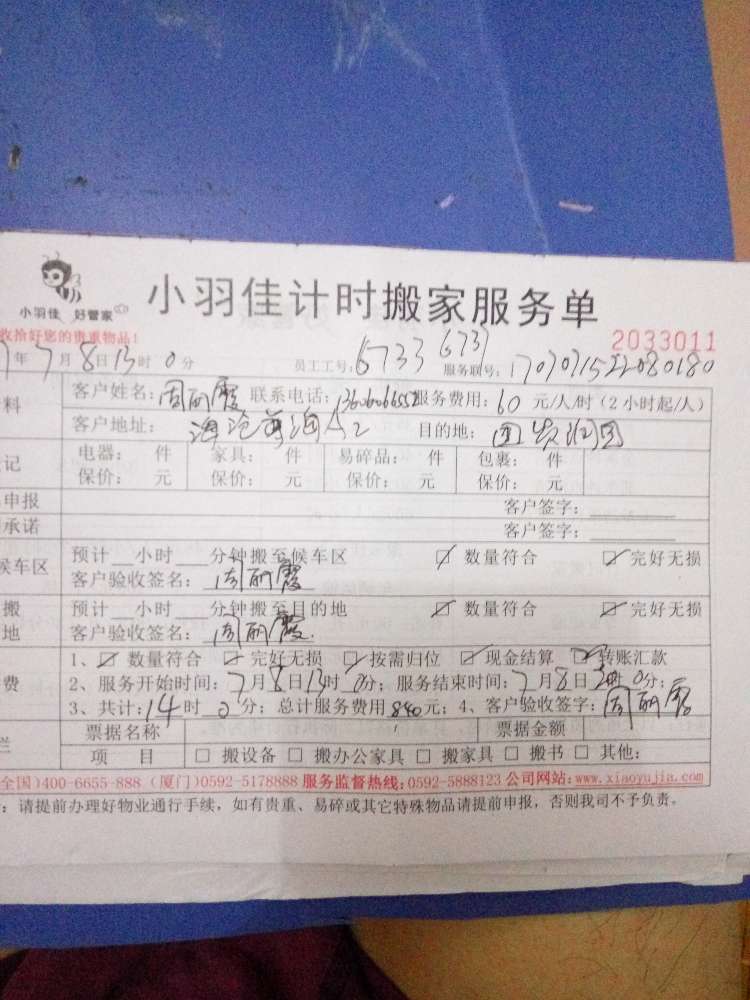 小羽佳 好管家
小羽佳计时搬家服务单
收拾好您的贵重物品!
2033011
年7月8日13时0分 员工工号:6733 6731 服务联号:
料 客户姓名:周丽霞 联系电话: 服务费用:60元/人/时(2小时起/人)
客户地址: 目的地:
记 电器: 件 家具: 件 易碎品: 件 包裹: 件
保价: 元 保价: 元 保价: 元 保价: 元
申报 客户签字:
承诺 客户签字:
候车区 预计__小时__分钟搬至候车区 ☑数量符合 ☑完好无损
客户验收签名:周丽霞
搬 预计__小时__分钟搬至目的地 ☑数量符合 ☑完好无损
地 客户验收签名:周丽霞
1、☑数量符合 ☑完好无损 ☑按需归位 ☑现金结算 ☑转账汇款
费 2、服务开始时间:7月8日13时0分;服务结束时间:7月8日20时0分;
3、共计:14时0分;总计服务费用840元;4、客户验收签字:周丽霞
栏 票据名称 票据金额
项 目 □搬设备 □搬办公家具 □搬家具 □搬书 □其他:
全国)400-6655-888(厦门)0592-5178888 服务监督热线:0592-5888123 公司网站:www.xiaoyujia.com
:请提前办理好物业通行手续,如有贵重、易碎或其它特殊物品请提前申报,否则我司不予负责。